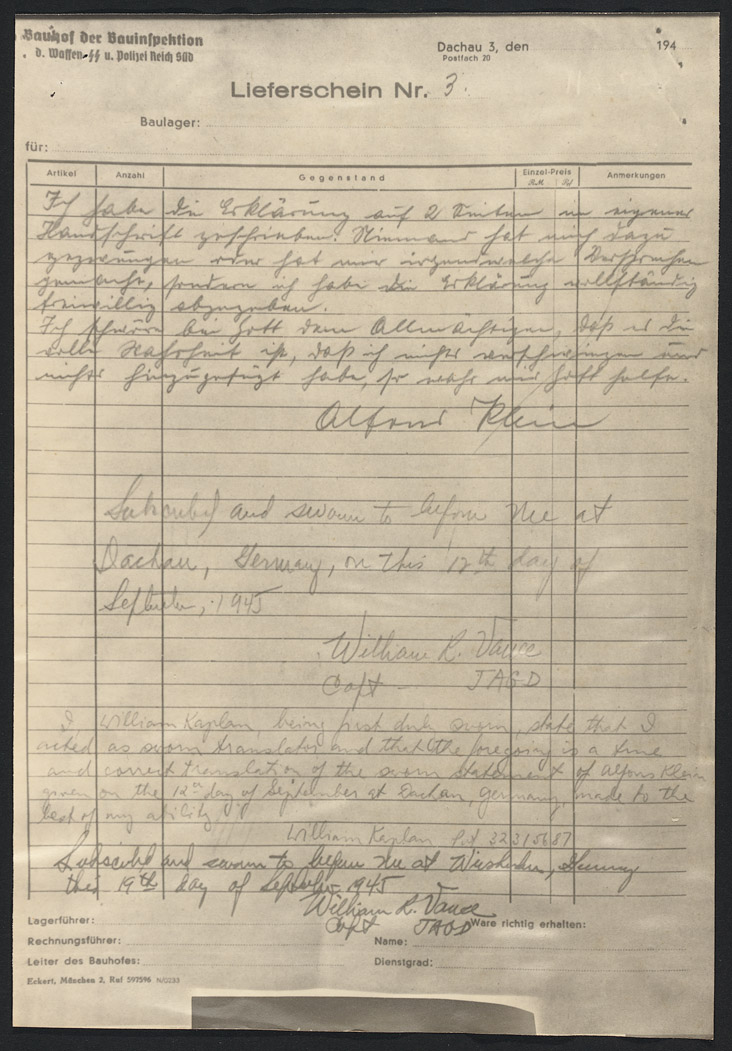 Bauhof der Bauinspektion
d. Waffen-SS u. Polizei Reich Süd
Dachau 3, den 194
Postfach 20
Lieferschein Nr. 3.
Baulager:
für:
Artikel Anzahl Gegenstand Einzel-Preis Anmerkungen
RM Pf
Ich habe die Erklärung auf 2 Seiten in eigener
Handschrift geschrieben. Niemand hat mich dazu
gezwungen oder hat mir irgendwelche Versprechen
gemacht, sondern ich habe die Erklärung vollständig
freiwillig abgegeben.
Ich schwöre bei Gott dem Allmächtigen, daß es die
volle Wahrheit ist, daß ich nichts verschwiegen und
nichts hinzugefügt habe, so wahr mir Gott helfe.
Alfons Klein
Subscribed and sworn to before me at
Dachau, Germany, on this 12th day of
September, 1945
William R. Vance
Capt — JAGD
I, William Kaplan, being first duly sworn, state that I
acted as sworn translator and that the foregoing is a true
and correct translation of the sworn statement of Alfons Klein
given on the 12th day of September at Dachau, Germany, made to the
best of my ability
William Kaplan 32315687
Subscribed and sworn to before me at Wiesbaden, Germany
this 19th day of September 1945
William R. Vance
Capt JAGD
Ware richtig erhalten:
Lagerführer:
Rechnungsführer: Name:
Leiter des Bauhofes: Dienstgrad:
Eckert, München 2, Ruf 597596 N/0233